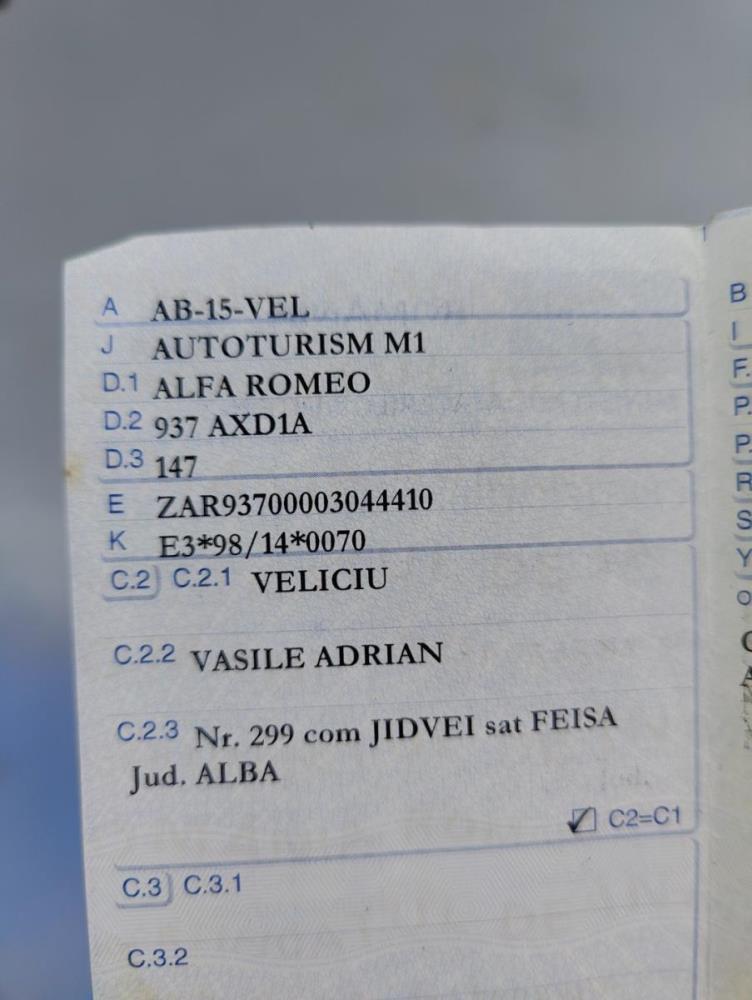 A AB-15-VEL
J AUTOTURISM M1
D.1 ALFA ROMEO
D.2 937 AXD1A
D.3 147
E ZAR93700003044410
K E3*98/14*0070
C.2 C.2.1 VELICIU
C.2.2 VASILE ADRIAN
C.2.3 Nr. 299 com JIDVEI sat FEISA
Jud. ALBA
C2=C1
C.3 C.3.1
C.3.2
B
I
F.
P.
P.
R
S
Y